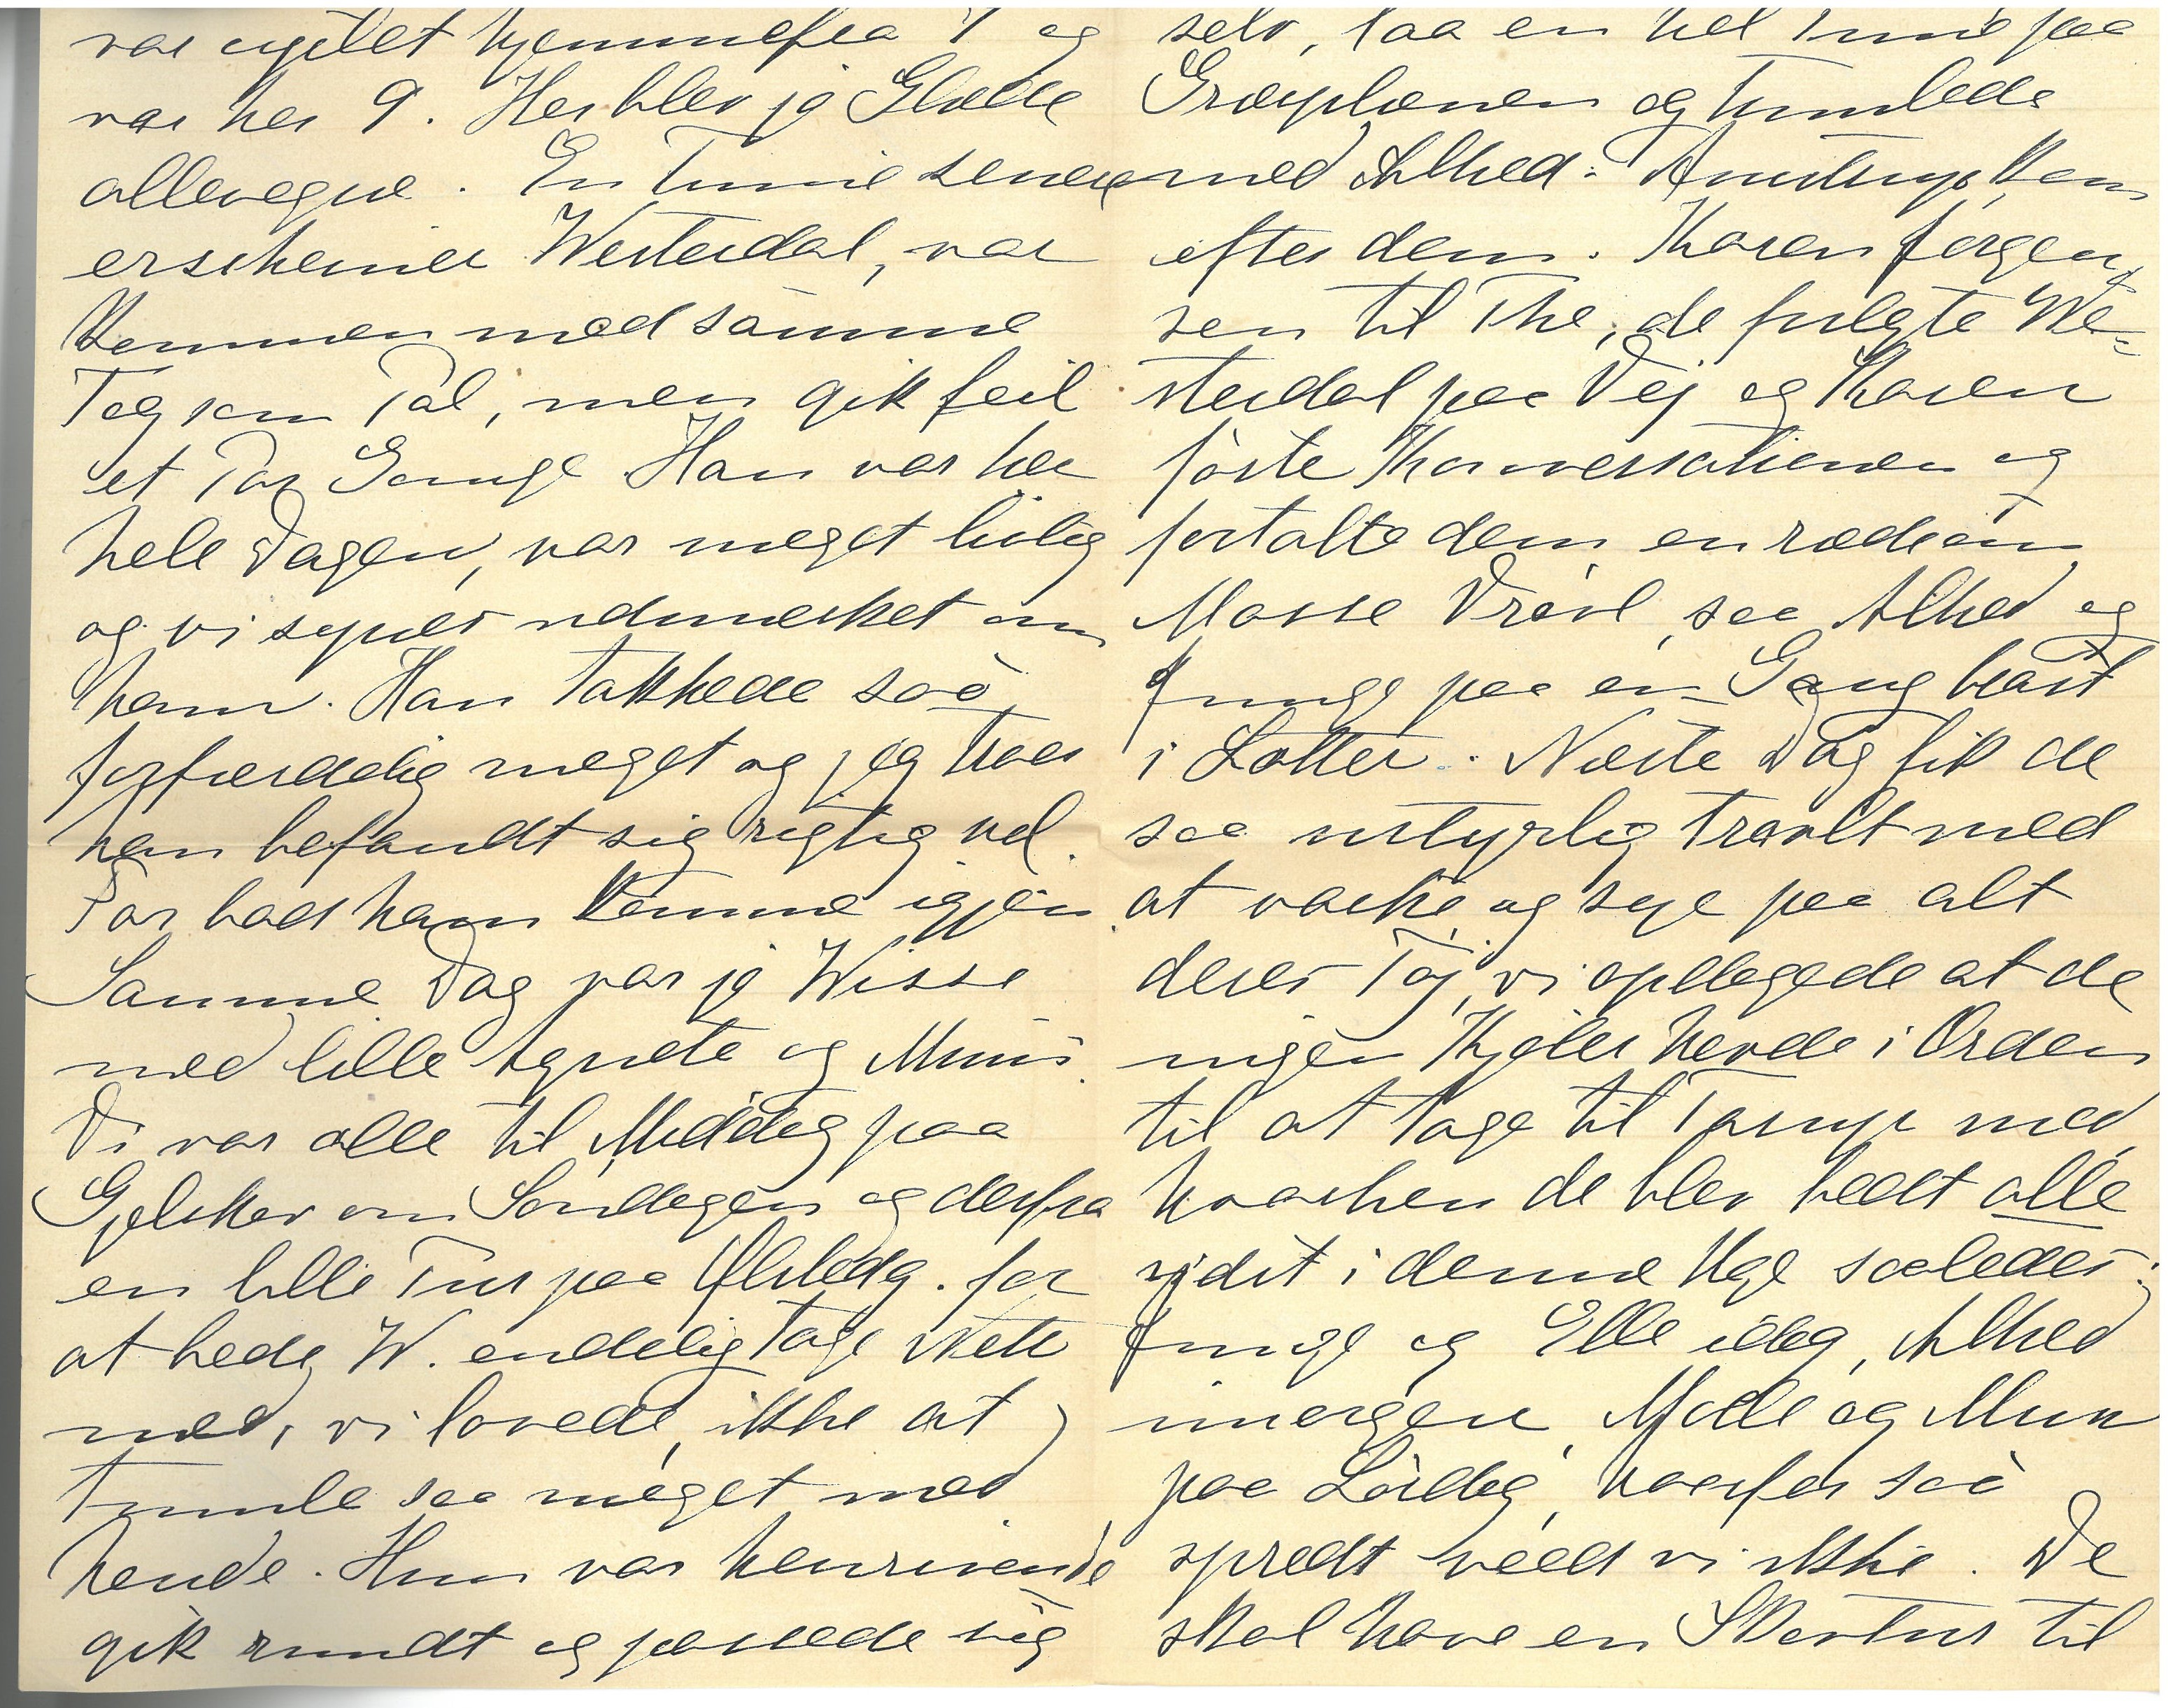 var cyclet hjemmefra 7 og
var her 9. Her blev jo Glæde
allevegne. En Time senere
erscheiner Westerdal, var
kommen med samme
Tog som Pal, men gik feil
et Par Gange. Han var her
hele Dagen, var meget livlig
og vi synes udmærket om
ham. Han takkede saa
forfærdelig meget og jeg troer
han befandt sig rigtig vel.
Far bad ham komme igjen.
Samme Dag var jo Wisse
med lille Agnete og Mimi.
Vi var alle til Middag paa
Gjelskov om Søndagen og derfra
en lille Tur paa Ølstedg. for
at bede W. endelig tage Nete
med, vi lovede ikke at
tumle saa meget med
hende. Hun var henrivende
gik rundt og passede sig
selv, laa en hel Time paa
Græsplænen og tumlede
med Alhed. kom
efter dem. Karen Jørgen
sen til The, de fulgte We=
sterdal paa Vej og Karen
førte Konversationen og
fortalte dem en rædsom
Masse Vrøvl, saa Alhed og
Junge paa en Gang brast
i Latter. Næste Dag fik de
saa ustyrlig travlt med
at vaske og sye paa alt
deres Tøj, vi opdagede at de
ingen Kjoler havde i Orden
til at tage til Tarup med
hvorhen de blev bedt alle
vidst i denne Uge saaledes:
Junge og Elle idag, Alhed
imorgen, Molle og Mun
paa Lørdag, hvorfor saa
spredt veed vi ikke. De
skal have en Skovtur til